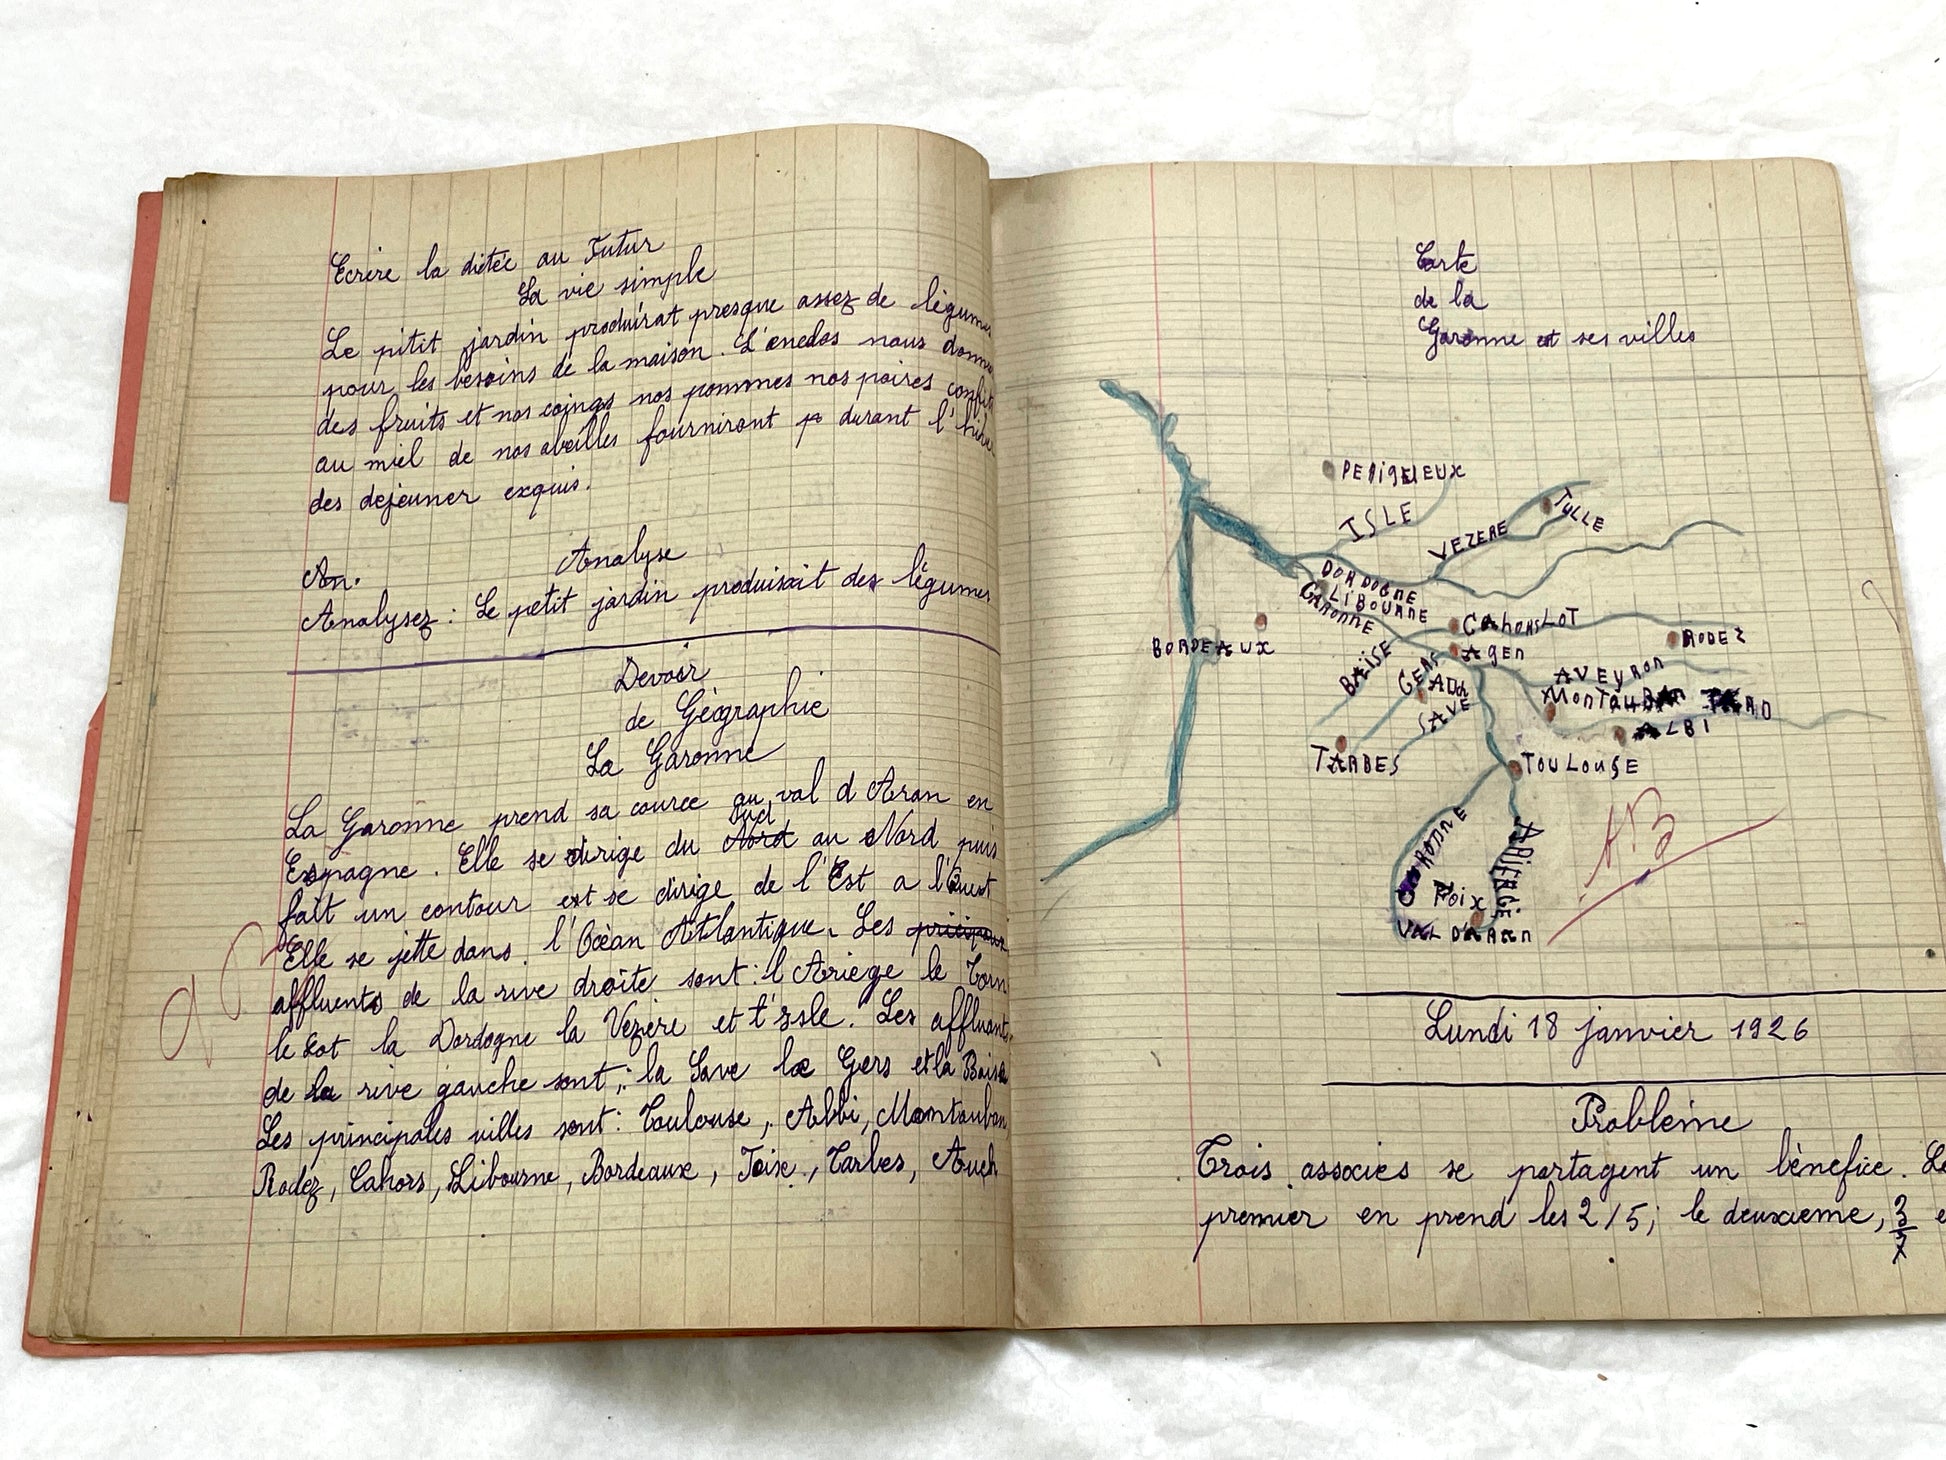 Ecrire la dictée au Futur
La vie simple
Le pitit jardin produirat presque assez de légumes
pour les besoins de la maison. L'enclos nous donn
des fruits et nos coings nos pommes nos poires confit
au miel de nos abeilles fourniront durant l'hive
des dejeuner exquis.
An. Analyse
Analysez : Le petit jardin produisait des légumes
Devoir
de Géographie
La Garonne
La Garonne prend sa cource au val d Aran en
Espagne. Elle se dirige du Nord Sud au Nord puis
fait un contour et se dirige de l'Est a l'Ouest
Elle se jette dans l'Océan Atlantique. Les pricipaux
affluents de la rive droite sont : l Ariège le Tarn
le Lot la Dordogne la Vezère et l'Isle. Les affluants
de la rive gauche sont : la Save le Gers et la Baise
Les principales villes sont : Toulouse, Albi, Montauban
Rodez, Cahors, Libourne, Bordeaux, Foix, Tarbes, Auch
Carte
de la
Garonne et ses villes
PERIGUEUX
ISLE
VEZERE
TULLE
DORDOGNE
LIBOURNE
GARONNE
CAHORS LOT
RODEZ
BORDEAUX
AGEN
BAÏSE
GERS
AUCH
AVEYRON
MONTAUBAN TARN
SAVE
ALBI
TARBES
TOULOUSE
GARONNE
ARIÈGE
FOIX
VAL D'ARAN
AB
Lundi 18 janvier 1926
Problème
Trois associés se partagent un bénéfice. Le
premier en prend les 2/5; le deuxieme, 3